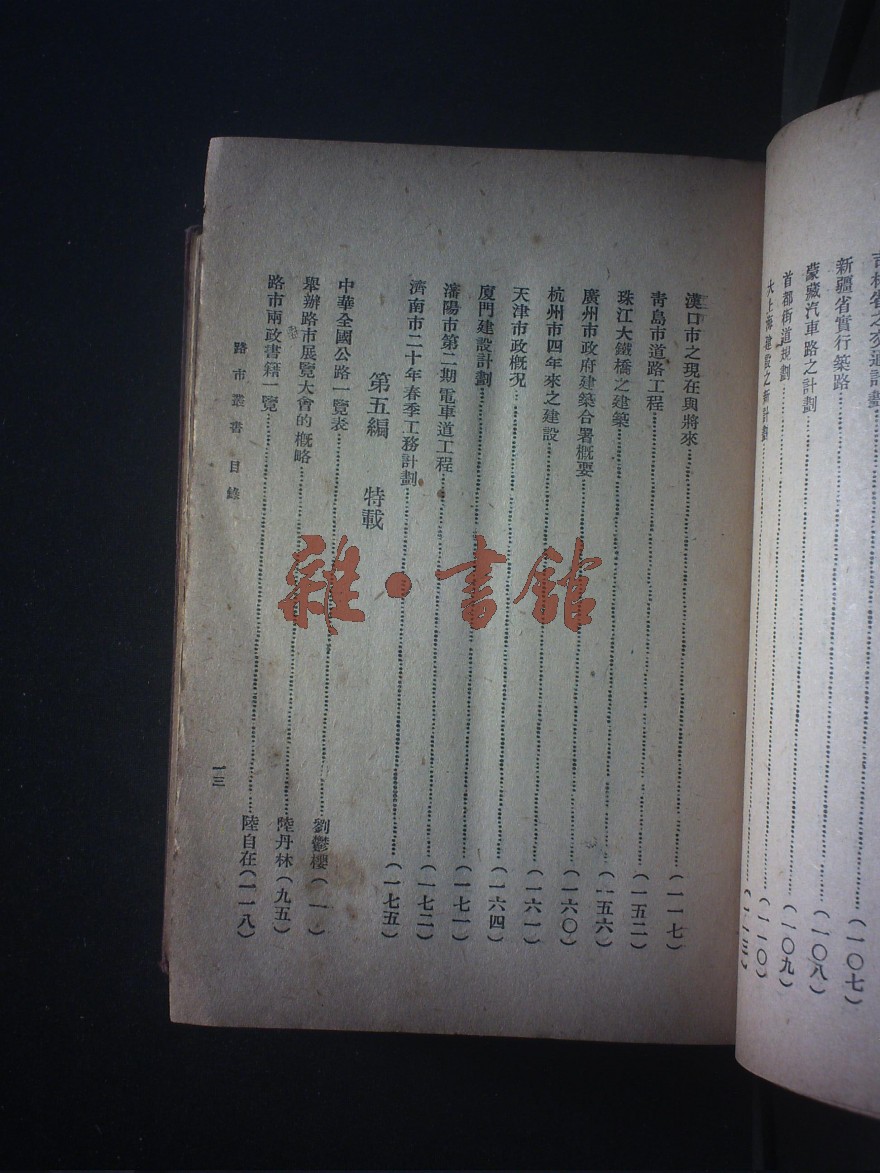 吉林省之交通計畫……(一〇七)
新疆省實行築路……(一〇八)
蒙藏汽車路之計劃……(一〇九)
首都街道規劃……(一一〇)
大上海建設之新計劃……(一一三)
漢口市之現在與將來……(一一七)
青島市道路工程……(一五二)
珠江大鐵橋之建築……(一五六)
廣州市政府建築合署概要……(一六〇)
杭州市四年來之建設……(一六一)
天津市政概況……(一六四)
廈門建設計劃……(一七一)
瀋陽市第二期電車道工程……(一七二)
濟南市二十年春季工務計劃……(一七五)
第五編 特載
中華全國公路一覽表……劉鬱櫻(一)
舉辦路市展覽大會的概略……陸丹林(九五)
路市兩政書籍一覽……陸自在(一一八)
路市叢書 目錄
一三
雜·書館